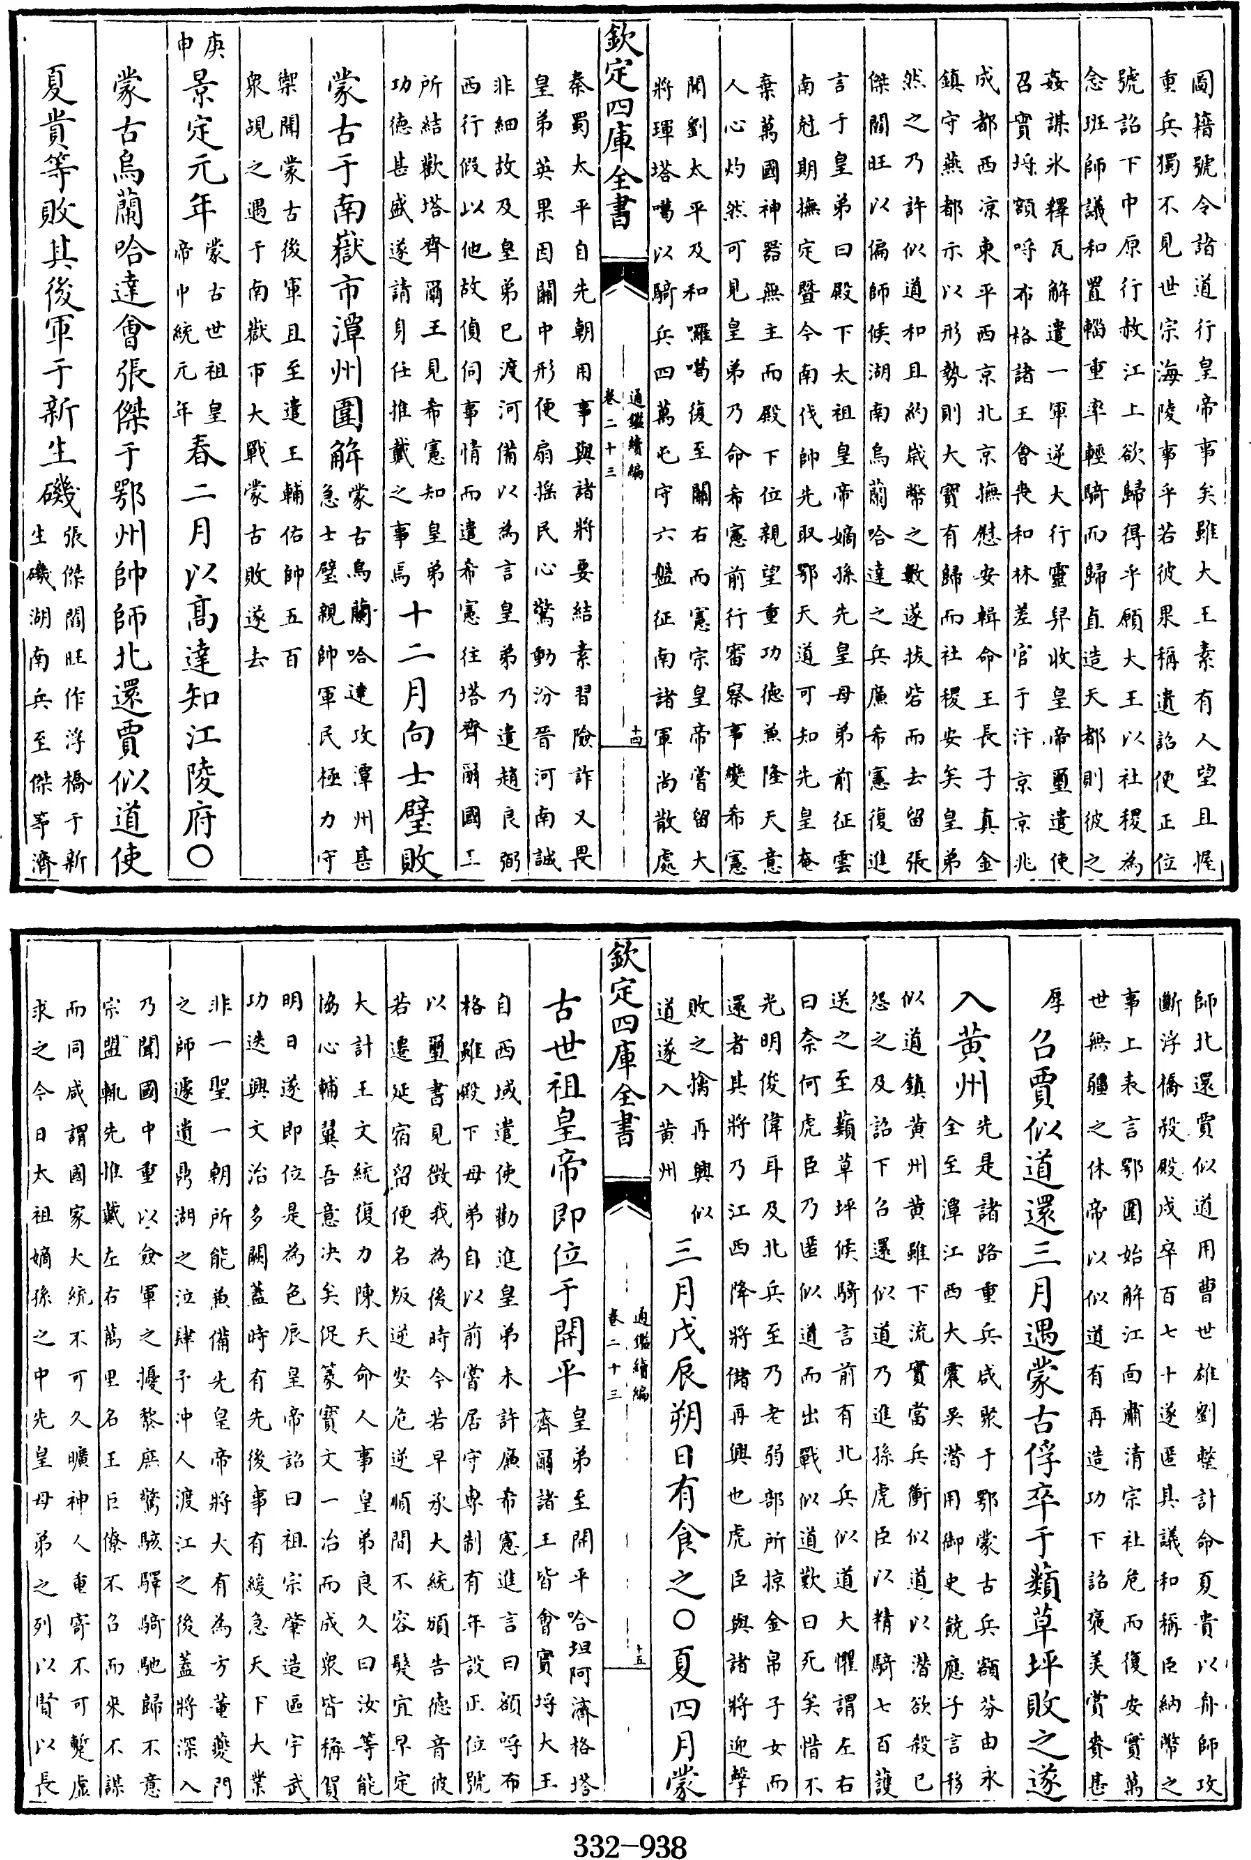 圖籍號令諸道行皇帝事矣雖大王素有人望且惺
重兵獨不見世宗海陵事乎若彼果稱遺詔使正位
號詔下中原行赦江上欲歸得乎願大王以社稷為
念班師議和置輜重率輕騎而歸直造天都則彼之
姦謀氷釋瓦解遣一軍逆大行靈舁收皇帝璽遣使
召實埒額呼布格諸王會喪和林差官于汴京京兆
成都西凉東平西京北京撫慰安輯命王長子真金
鎮守燕都示以形勢則大寶有歸而社稷安矣皇弟
然之乃許似道和且約歲幣之數遂拔砦而去留張
傑閻旺以偏師候湖南烏蘭哈達之兵廉希憲復進
言于皇弟曰殿下太祖皇帝嫡孫先皇母弟前征雲
南尅期撫定暨今南伐帥先取鄂天道可知先皇奄
棄萬國神器無主而殿下位親望重功德兼隆天意
人心灼然可見皇弟乃命希憲前行審察事變希憲
聞劉太平及和囉噶復至關右而憲宗皇帝嘗留大
將琿塔噶以騎兵四萬屯守六盤征南諸軍尚散處
欽定四庫全書
通鑑續編
卷二十三
十四
秦蜀太平自先朝用事與諸將要結素習險詐又畏
皇弟英果因關中形便扇搖民心驚動汾晉河南誠
非細故及皇弟已渡河備以為言皇弟乃遣趙良弼
西行假以他故偵伺事情而遣希憲往塔齊爾國王
所結歡塔齊爾王見希憲知皇弟
功德甚盛遂請身任推戴之事焉
十二月向士璧敗
蒙古于南嶽市潭州圍解
蒙古烏蘭哈達攻潭州甚
急士璧親帥軍民極力守
禦聞蒙古後軍且至遣王輔佑帥五百
衆覘之遇于南嶽市大戰蒙古敗遂去
庚申
景定元年
蒙古世祖皇
帝中統元年
春二月以高達知江陵府〇
蒙古烏蘭哈達會張傑于鄂州帥師北還賈似道使
夏貴等敗其後軍于新生磯
張傑閻旺作浮橋于新
生磯湖南兵至傑等濟
師北還賈似道用曹世雄劉整計命夏貴以舟師攻
斷浮橋殺殿戍卒百七十遂匿其議和稱臣納幣之
事上表言鄂圍始解江面肅清宗社危而復安實萬
世無疆之休帝以似道有再造功下詔褒美賞賚甚
厚
召賈似道還三月遇蒙古俘卒于蘋草坪敗之遂
入黃州
先是諸路重兵咸聚于鄂蒙古兵額芬由永
全至潭江西大震吳潛用御史饒應子言移
似道鎮黃州黃雖下流實當兵衝似道以潛欲殺己
怨之及詔下召還似道乃進孫虎臣以精騎七百護
送之至蘋草坪候騎言前有北兵似道大懼謂左右
曰奈何虎臣乃匿似道而出戰似道歎曰死矣惜不
光明俊偉耳及北兵至乃老弱部所掠金帛子女而
還者其將乃江西降將儲再興也虎臣與諸將迎擊
敗之擒再興似
道遂入黃州
三月戊辰朔日有食之〇夏四月蒙
欽定四庫全書
通鑑續編
卷二十三
十五
古世祖皇帝即位于開平
皇弟至開平哈坦阿濟格塔
齊爾諸王皆會實埒大王
自西域遣使勸進皇弟未許廉希憲進言曰額呼布
格雖殿下母弟自以前嘗居守專制有年設正位號
以璽書見徵我為後時今若早承大統頒告德音彼
若遷延宿留便名叛逆安危逆順間不容髮宜早定
大計王文統復力陳天命人事皇弟良久曰汝等能
協心輔翼吾意决矣促篆寶文一冶而成衆皆稱賀
明日遂即位是為色辰皇帝詔曰祖宗肇造區宇武
功迭興文治多闕蓋時有先後事有緩急天下大業
非一聖一朝所能兼備先皇帝將大有為方董夔門
之師遽遺鼎湖之泣肆予冲人渡江之後蓋將深入
乃聞國中重以僉軍之擾黎庶驚駭驛騎馳歸不意
宗盟輒先推戴左右萬里名王巨僚不召而來不謀
而同咸謂國家大統不可久曠神人重寄不可蹔虛
求之今日太祖嫡孫之中先皇母弟之列以賢以長
332-938